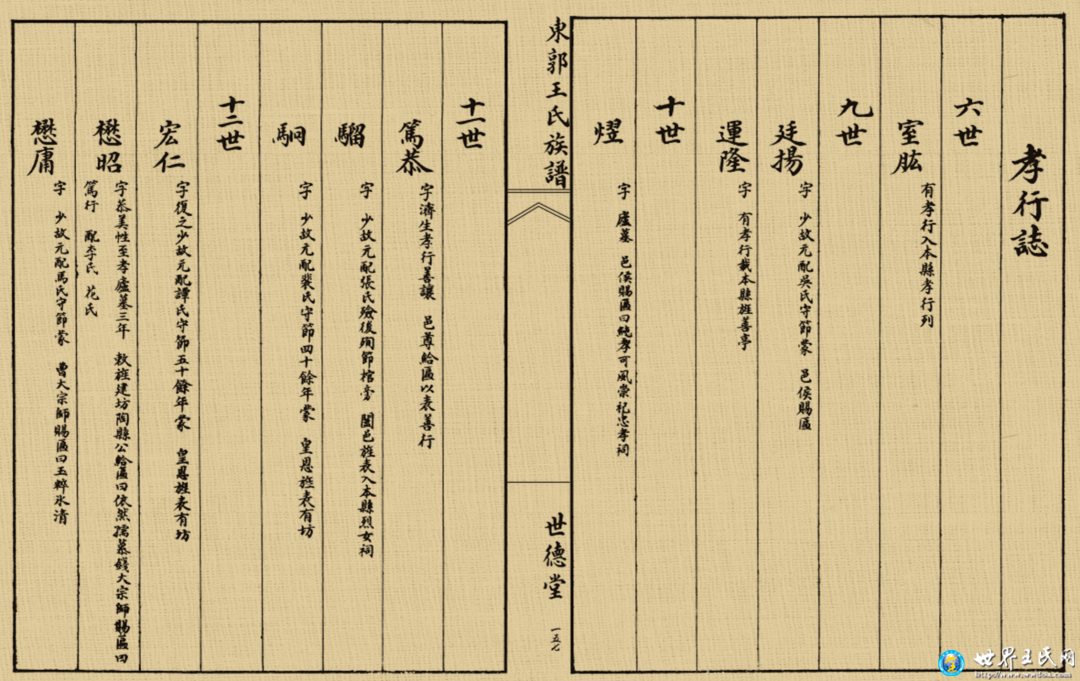 孝行誌
六世
室肱 有孝行入本縣孝行列
九世
廷揚 字 少故元配吳氏守節蒙 邑侯賜匾
運隆 字 有孝行載本縣旌善亭
十世
熤 字 廬墓 邑侯賜匾曰純孝可風崇祀忠孝祠
東郭王氏族譜
世德堂
一五七
十一世
篤恭 字濟生孝行善讓 邑尊給匾以表善行
騮 字 少故元配張氏殮後殉節棺旁 闔邑旌表入本縣烈女祠
駉 字 少故元配裴氏守節四十餘年蒙 皇恩旌表有坊
十二世
宏仁 字復之少故元配譚氏守節五十餘年蒙 皇恩旌表有坊
懋昭 字恭美性至孝廬墓三年 敕旌建坊陶縣公給匾曰依然孺慕錢大宗師賜匾曰
篤行 配李氏 花氏
懋庸 字 少故元配馬氏守節蒙 曹大宗師賜匾曰玉粹氷清
世界王氏网
http://www.wwdoa.com